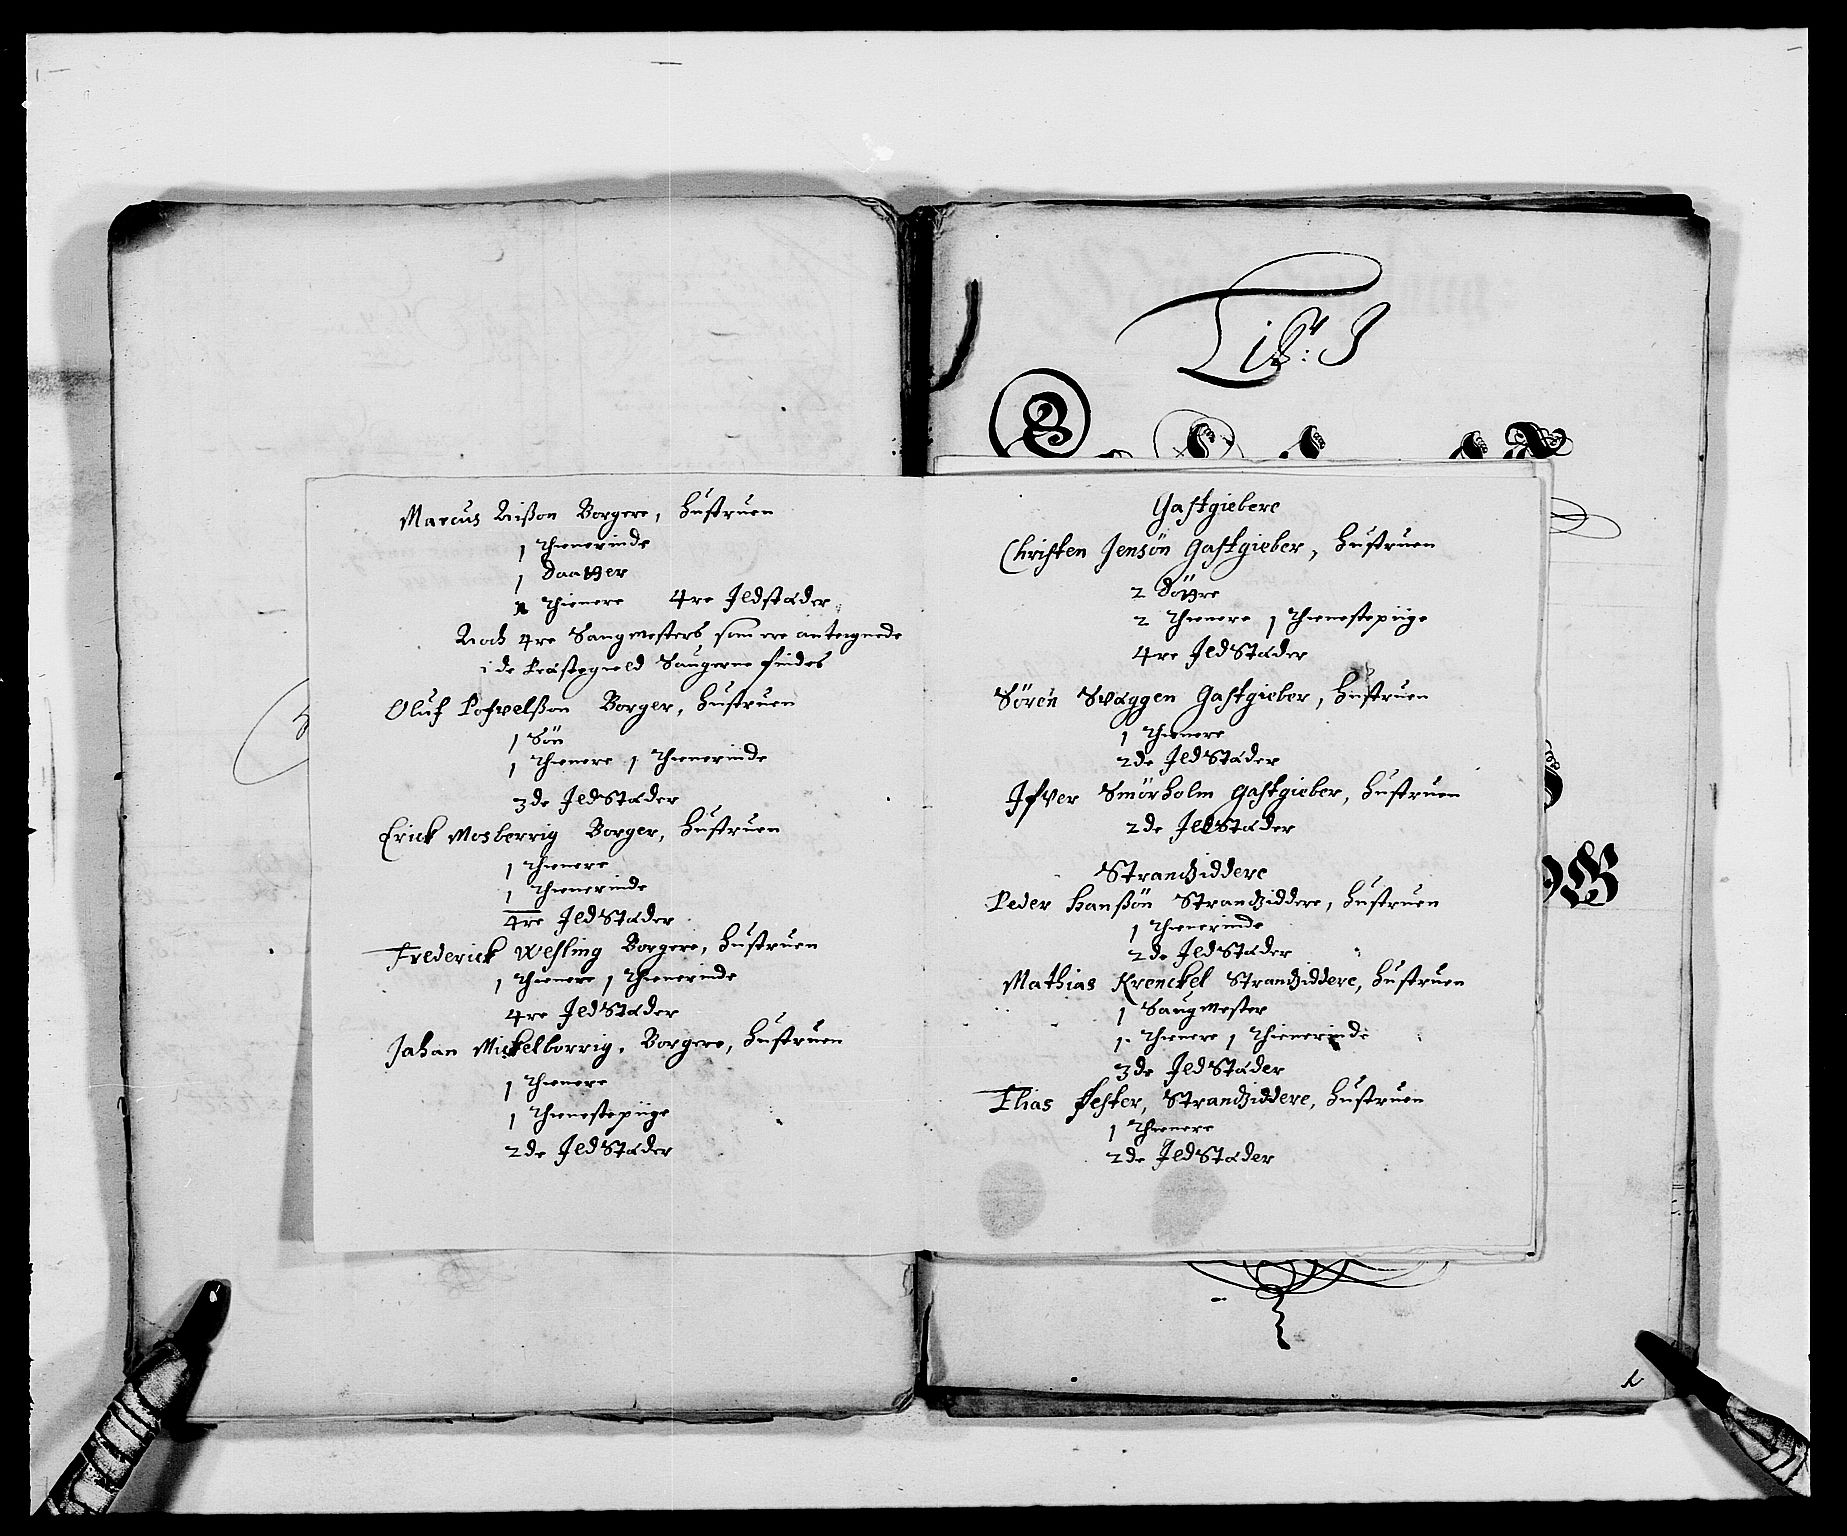 Marcus Nißon Borgere, Hustruen
1 Thienerinde
1 Daatter
Thienere 4re Ildstæder
Noch 4re Saugmesters som ere antegnede
i de Præstegield Saugerne findes
Oluf Pofvelßon Borger, Hustruen
1 Sön
1 Thienere 1 Thienerinde
3de Ildstæder
Erick Mosberrig Borger, Hustruen
1 Thienere
1 Thienerinde
4re Ildstæder
Frederick Wesling Borgere, Hustruen
1 Thienere 1 Thienerinde
4re Ildstæder
Johan Mickelborrig, Borgere, Hustruen
1 Thienere
1 Thienestepiige
2de Ildstæder
Lit: J
Gastgiebere
Christen Jensön Gastgieber, Hustruen
2 Döttre
2 Thienere 1 Thienestepiige
4re Ildstæder
Sören Svaggen Gastgieber, Hustruen
1 Thienere
2de Ildstæder
Ifver Smörholm Gastgieber, Hustruen
2de Ildstæder
Strandsiddere
Peder Hanßön Strandsiddere, Hustruen
1 Thienerinde
2de Ildstæder
Mathias Krenckel Strandsiddere, Hustruen
1 Saugmester
1 Thienere 1 Thienerinde
3de Ildstæder
Elias Fester, Strandsiddere, Hustruen
1 Thienere
2de Ildstæder